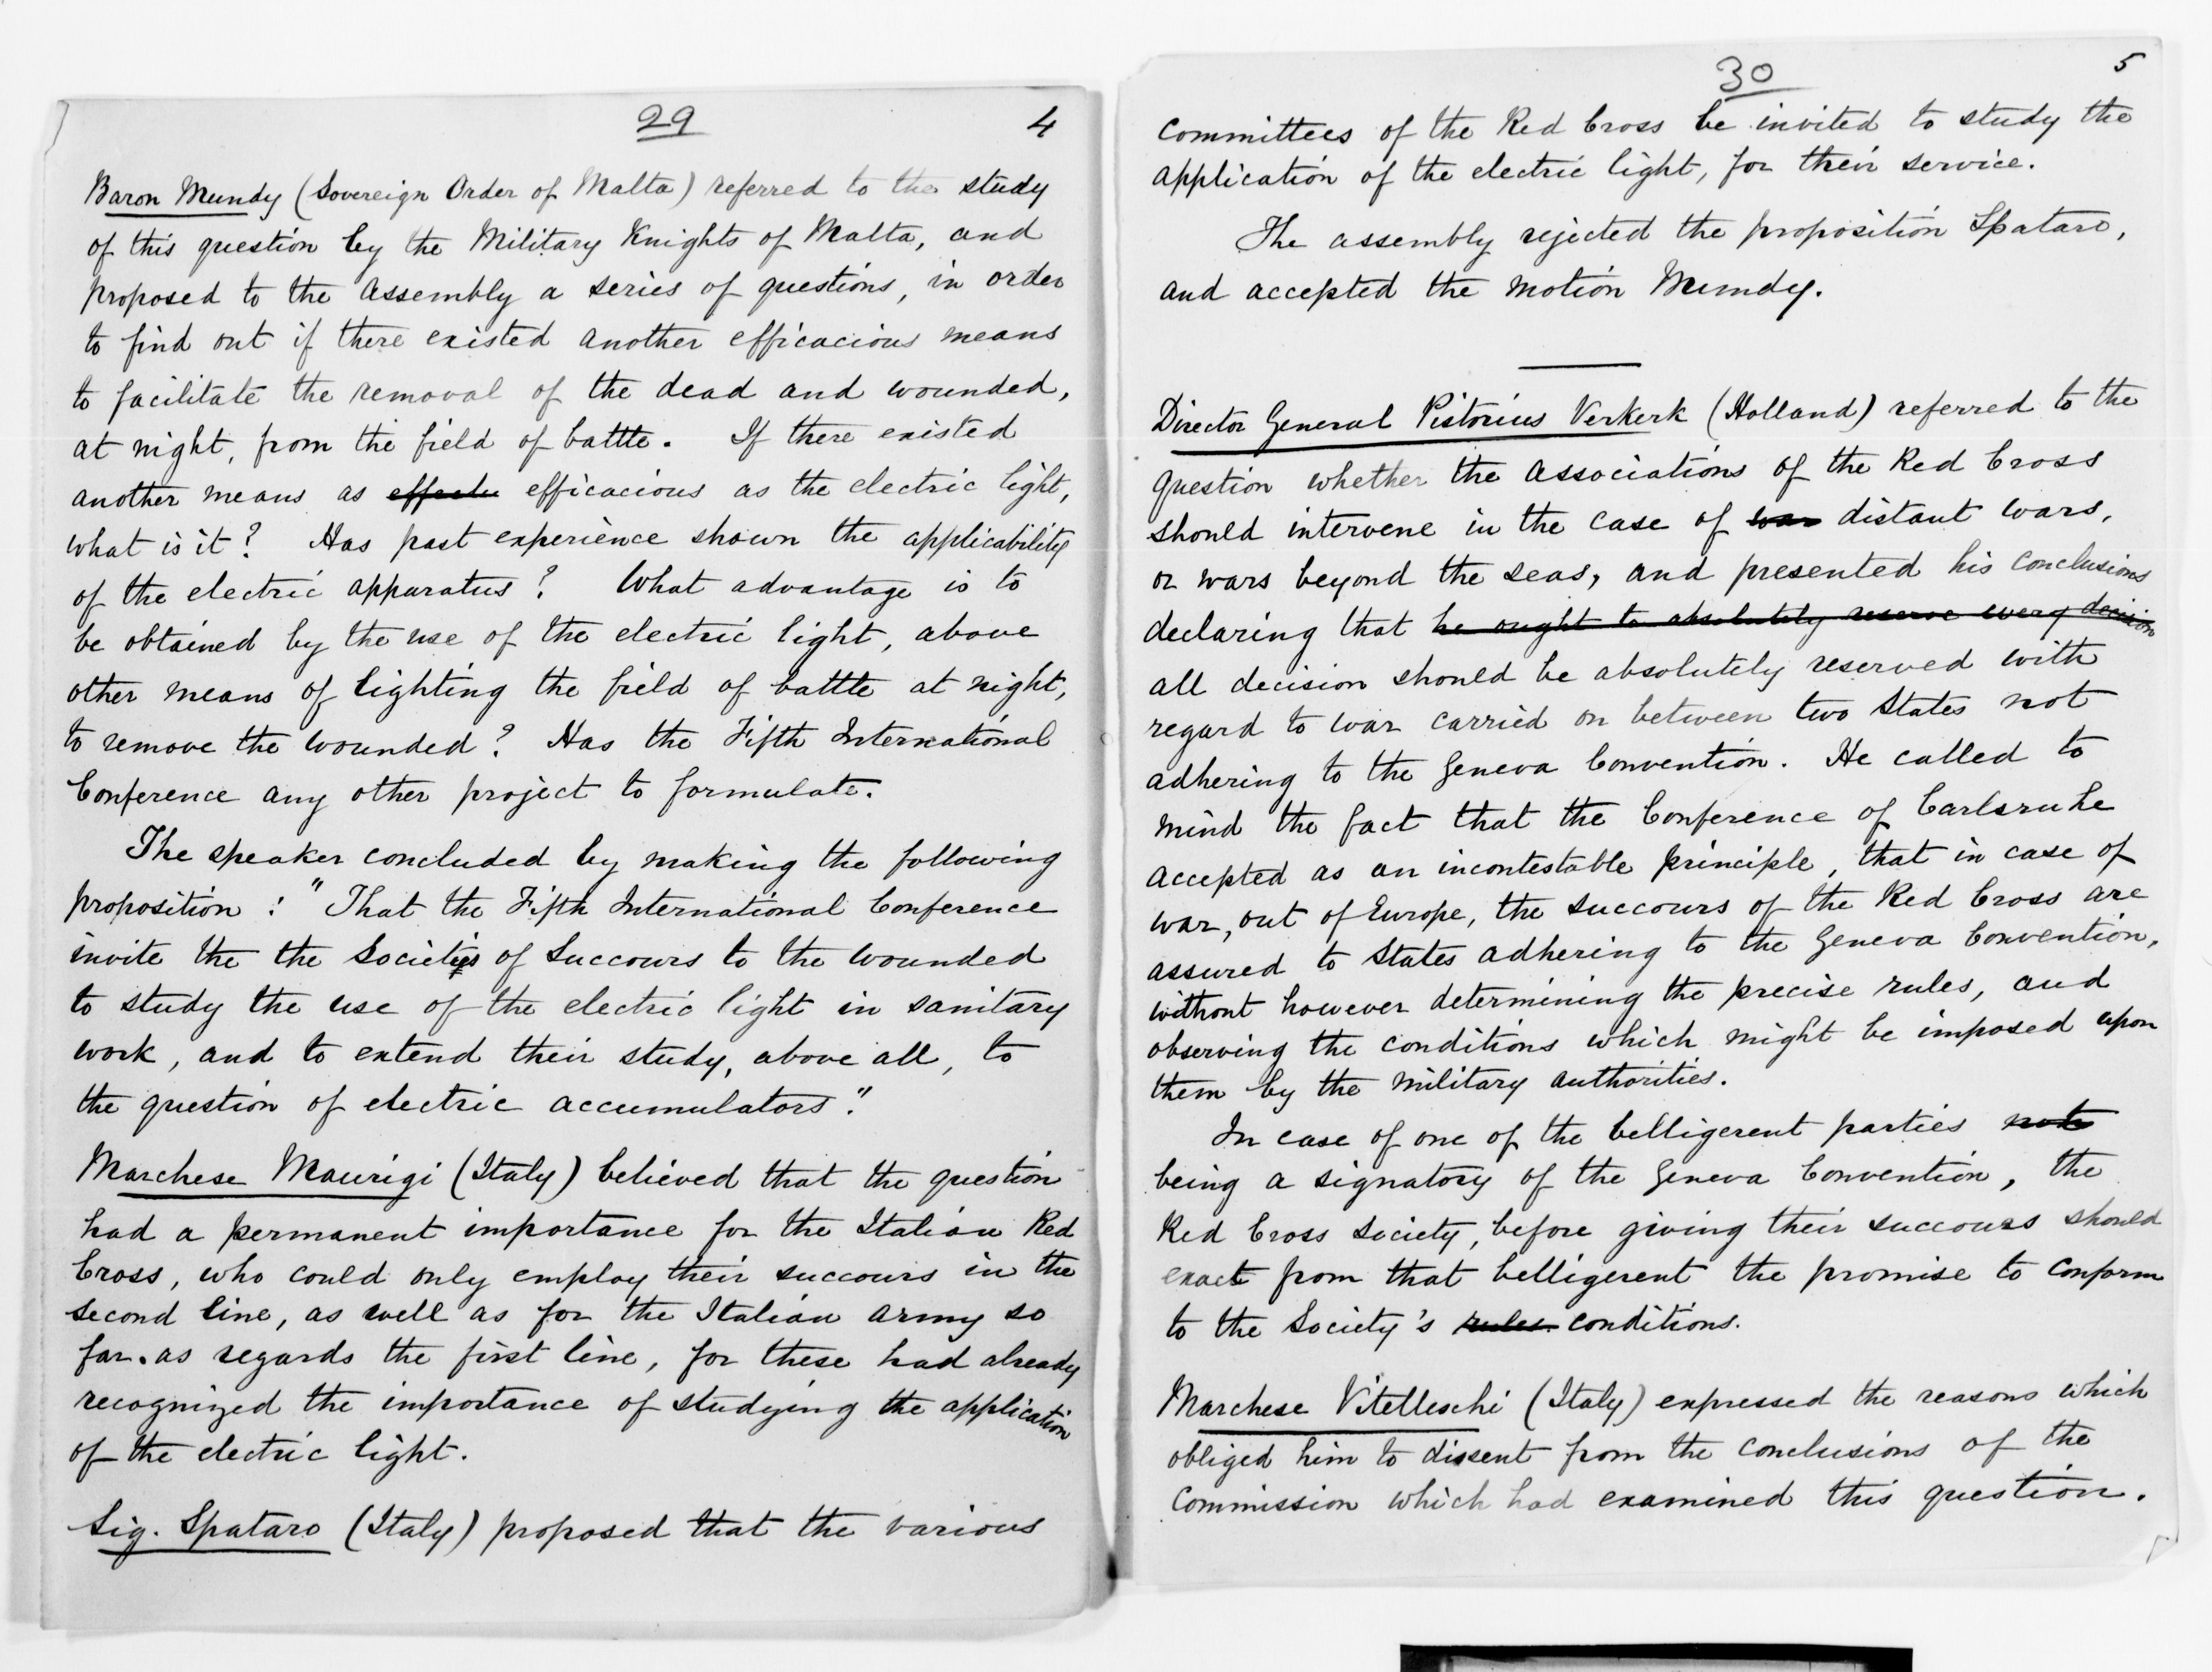 29 4
Baron Mundy (Sovereign Order of Malta) referred to the study
of this question by the Military Knights of Malta, and
proposed to the Assembly a series of questions, in order
to find out if there existed another efficacious means
to facilitate the removal of the dead and wounded,
at night, from the field of battle. If there existed
another means as efficacious as the electric light,
what is it? Has past experience shown the applicability
of the electric apparatus? What advantage is to
be obtained by the use of the electric light, above
other means of lighting the field of battle at night,
to remove the wounded? Has the Fifth International
Conference any other project to formulate.
The speaker concluded by making the following
proposition: "That the Fifth International Conference
invite the the Societies of Succours to the wounded
to study the use of the electric light in sanitary
work, and to extend their study, above all, to
the question of electric accumulators."
Marchese Maurigi (Italy) believed that the question
had a permanent importance for the Italian Red
Cross, who could only employ their succours in the
second line, as well as for the Italian army so
far as regards the first line, for these had already
recognized the importance of studying the application
of the electric light.
Sig. Spataro (Italy) proposed that the various
30 5
committees of the Red Cross be invited to study the
application of the electric light, for their service.
The assembly rejected the proposition Spataro,
and accepted the motion Mundy.
Director General Pistorius Verkerk (Holland) referred to the
question whether the associations of the Red Cross
should intervene in the case of war distant wars,
or wars beyond the seas, and presented his conclusions
declaring that he ought to absolutely reserve every decision
all decision should be absolutely reserved with
regard to war carried on between two States not
adhering to the Geneva Convention. He called to
mind the fact that the Conference of Carlsruhe
accepted as an incontestable principle, that in case of
war, out of Europe, the succours of the Red Cross are
assured to States adhering to the Geneva Convention,
without however determining the precise rules, and
observing the conditions which might be imposed upon
them by the military authorities.
In case of one of the belligerent parties not
being a signatory of the Geneva Convention, the
Red Cross Society, before giving their succours should
exact from that belligerent the promise to conform
to the Society's rules conditions.
Marchese Vitelleschi (Italy) expressed the reasons which
obliged him to dissent from the conclusions of the
Commission which had examined this question.